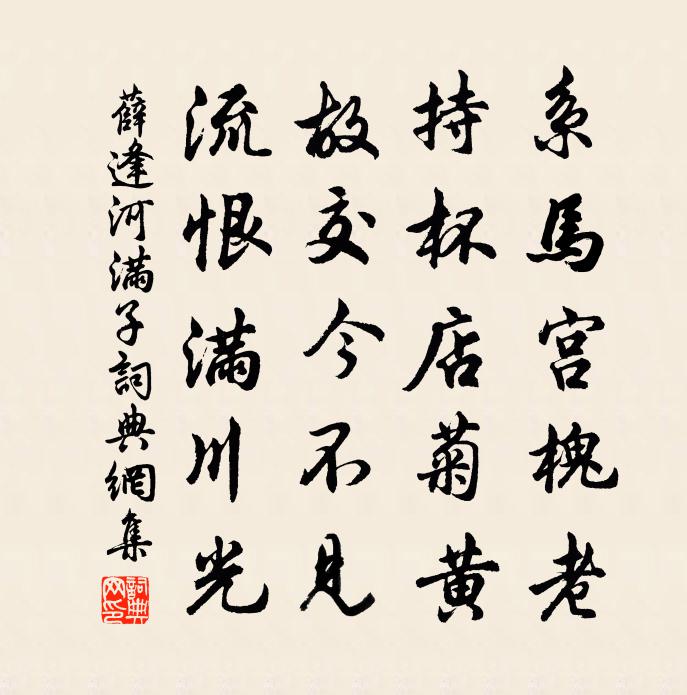 系馬宫槐老
持杯店菊黄
故交今不見
流恨滿川光
薛逢河滿子詞典網集
詞典網印